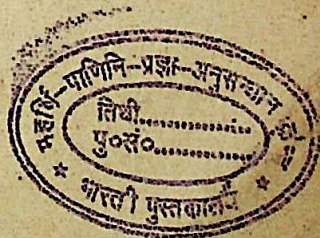 महर्षि-पाणिनि-प्रज्ञा-अनुसन्धान
तिथी..................
पु०सं०..................
★ भारती पुस्तकालय ★